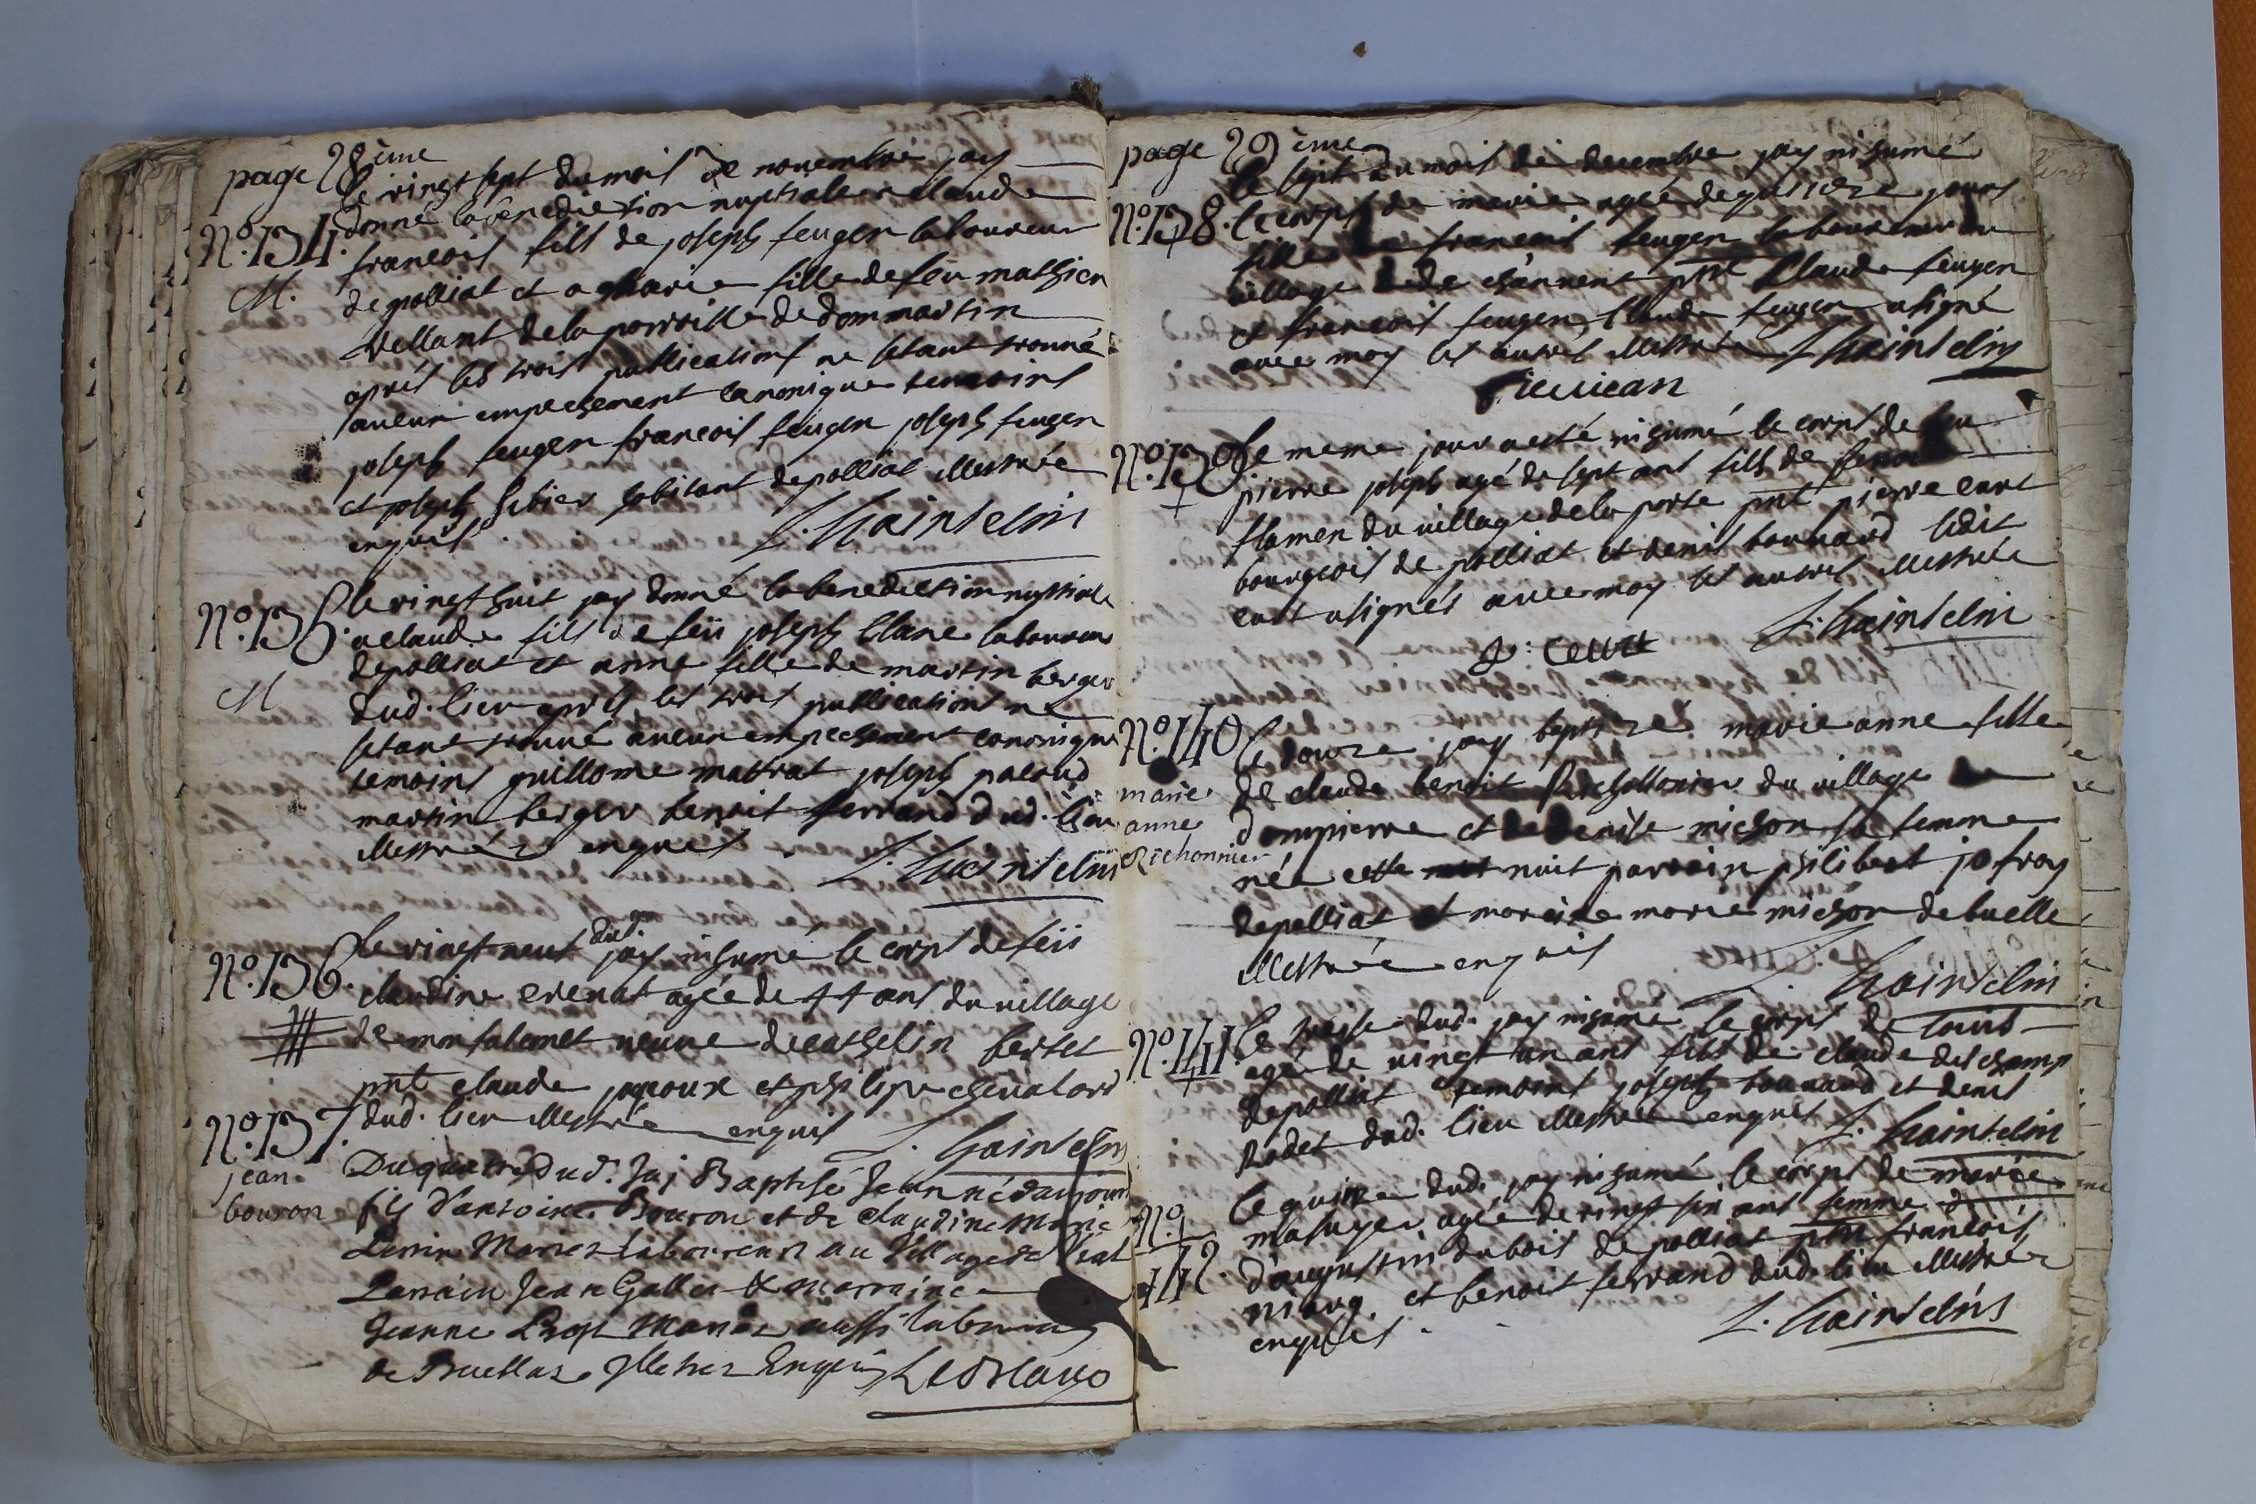 page 28 ème
le vingt sept du mois de novembre jay
N°. 134. donné la bénédiction nuptiale a claude
françois fils de joseph feugen laboureur
M. de polliat et a marie fille de feu mathieu
Vellant de la parroisse de dommartin
après les trois publications ne setant trouvé
aucun empechement canonique temoins
joseph feugen françois feugen joseph feugen
et joseph habitant de polliat illettrée
enquis.
J. hainselin
N°. 135. le vingt huit jay donné la benediction nuptiale
a claude fils de feü joseph Clare laboureur
depolliat et anne fille de martin berger
M dud. lieu après les trois publications ne
setant trouvé aucun empechement canonique
temoins guillome mattrat joseph pacoud
martin berger benoit ferrand dud. lieu
illettrée enquis
J. hainselin
N°. 136. le vingt neuf dud. jay inhumé le corps de feü
claudine evenat agée de 44 ans du village
de montalomet veuve de cathelin bertet
pnt claude joyoux et philipe chevalard
dud. lieu illettrée enquis J. hainselin
N°. 137. Du quatre dud. Jaj Baptisé Jean né daujourd
jean
bouron fils d'antoine Bouron et de claudine marie
Perrin Mariez laboureurs au Village de
Parrain Jean Gallet & marraine
Jeanne Mariez aussi laboureurs
de Buellas Illetrez Enquis
page 29 ème
le sept du mois de decembre jay inhumé
N°. 138. le corps de marie agée de quinze jours
fille de françois feugen laboureur du
village de chanvent pnt Claude feugen
et françois feugen Claude feugen asigné
avec moy les autres illettrée J. hainselin
N°. 139 le meme jour a esté inhumé le corps de feu
pierre joseph agé de sept ans fils de
flamen du village dela porte pnt pierre cart
bourgeois de polliat et denis bouvard ledit
cart asignés avec moy les autres illettrée
J. hainselin
N°. 140 le douze jay baptizé marie anne fille
marie
anne
Richonnier
de claude benoit Richonnier du village
dompierre et de denise michon sa femme
née cette nuit parrain philibert jofray
depolliat et mareine marie michon de buelle
illettrée enquis
J. hainselin
N°. 141. le treize dud. jay inhumé le corps de Louis
agé de vingt un ans fils de claude deschamp
depolliat temoins joseph bouvard et denis
Rodet dud. lieu illettrée enquis J. hainselin
N°.
142. le quinze dud. jay inhumé le corps de marie
masuyer agée de vingt six ans femme
d'augustin dubois de polliat pnt françois
niaug et benoit ferrand dud. lieu illettrée
enquis.
J. hainselin